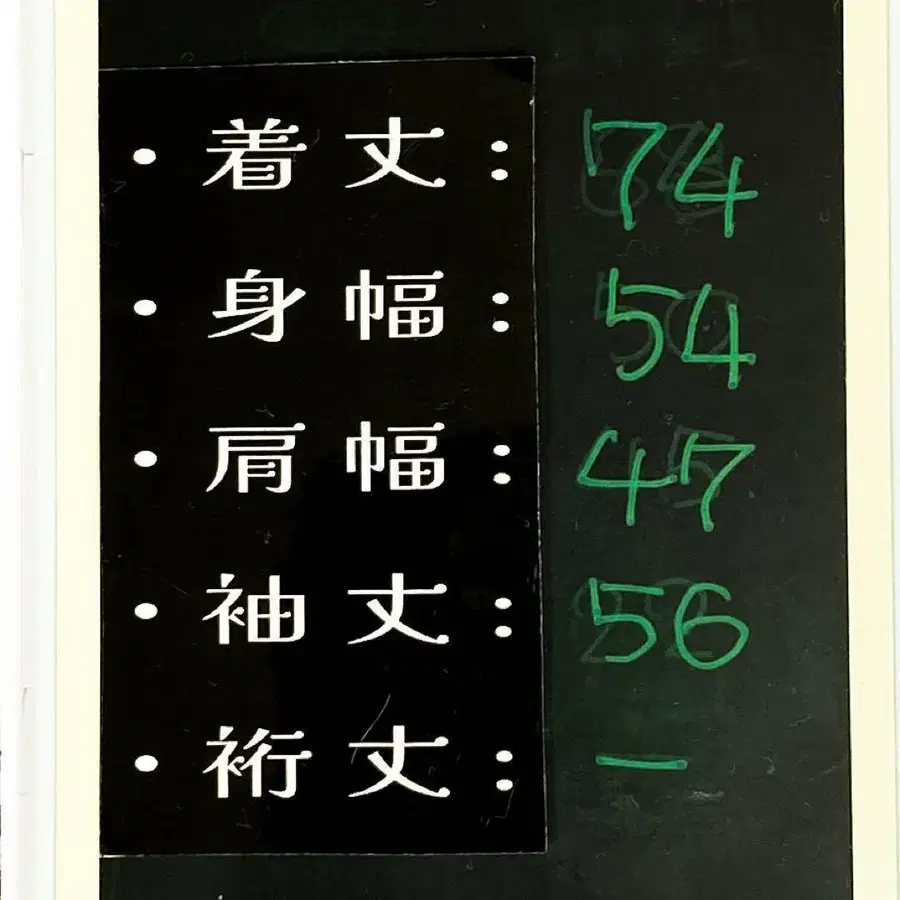 ・着丈: 74
・身幅: 54
・肩幅: 47
・袖丈: 56
・裄丈: —